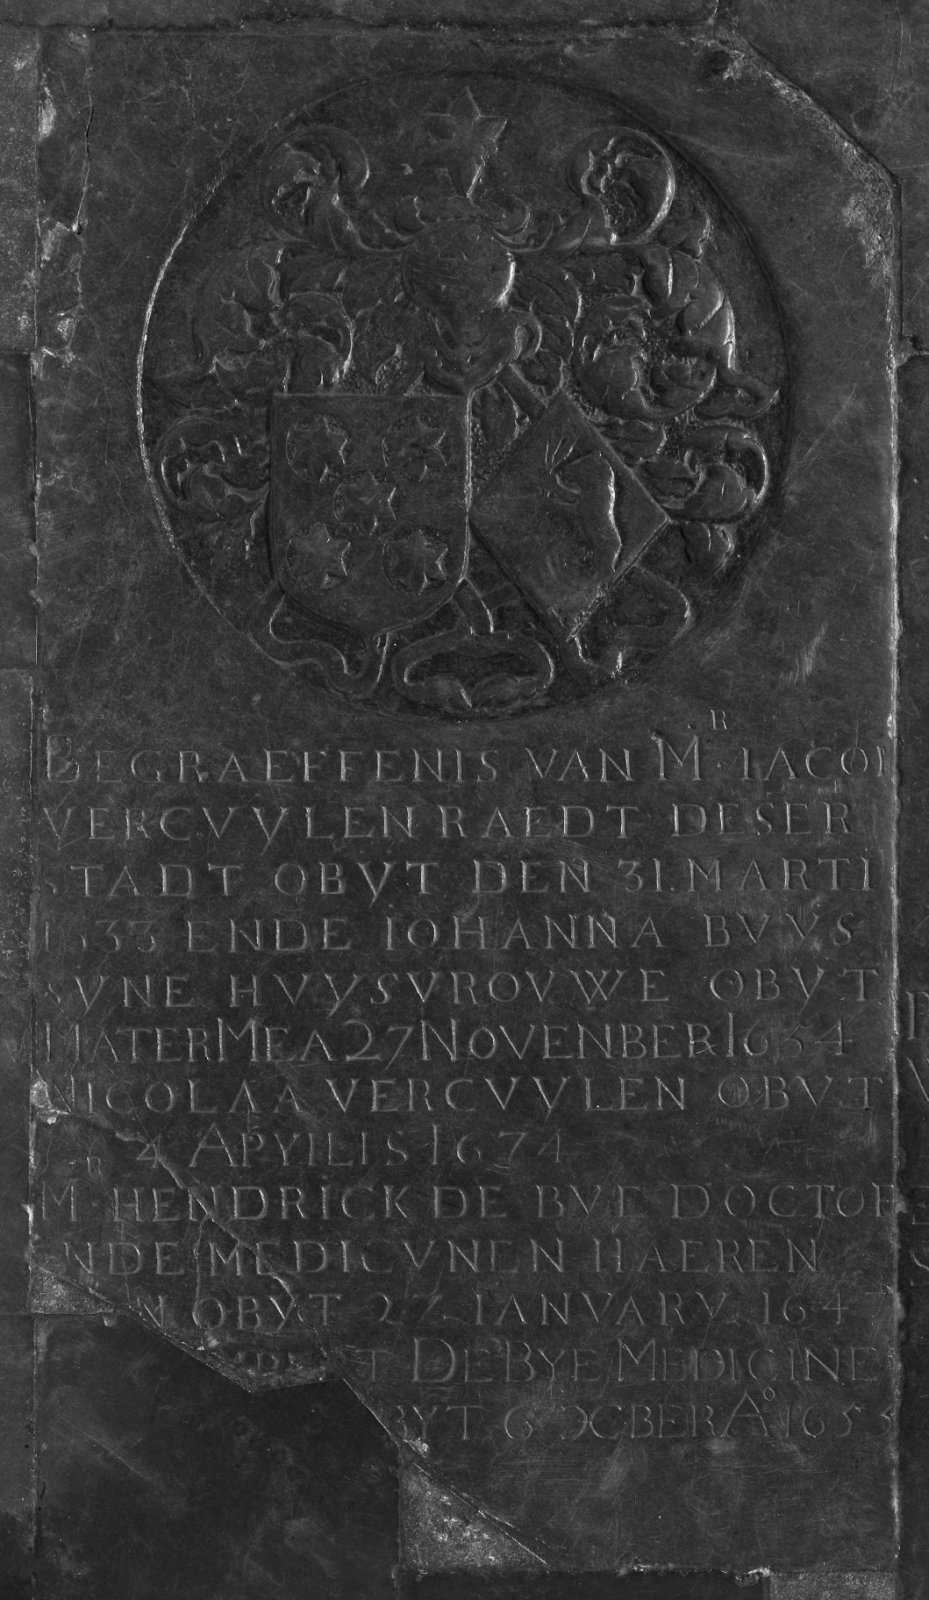 BEGRAEFFENIS VAN M.R IACOB
VERCVYLEN RAEDT DESER
STADT OBYT DEN 31.MARTI
1633 ENDE IOHANNA BVYS
SYNE HVYSVROVWE OBYT
MATER MEA 27 NOVENBER 1654
NICOLAA VERCVYLEN OBYT
4 APYILIS 1674
M.R HENDRICK DE BYE DOCTOR
ENDE MEDICYNEN HAEREN
OBYT 27 IANVARY 1647
DE BYE MEDICINE
BYT 6 OCBER Ao 1653